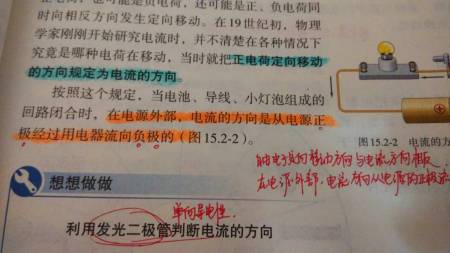 在电荷，也可能是负电荷，还可能是正、负电荷同
时向相反方向发生定向移动。在19世纪初，物理
学家刚刚开始研究电流时，并不清楚在各种情况下
究竟是哪种电荷在移动，当时就把正电荷定向移动
的方向规定为电流的方向
按照这个规定，当电池、导线、小灯泡组成的
回路闭合时，在电源外部，电流的方向是从电源正
极经过用电器流向负极的（图15.2-2）。
图15.2-2 电流的方
自由电子定向移动方向与电流方向相反
在电源外部，电流方向从电源的正极流
想想做做
单向导电性
利用发光二极管判断电流的方向